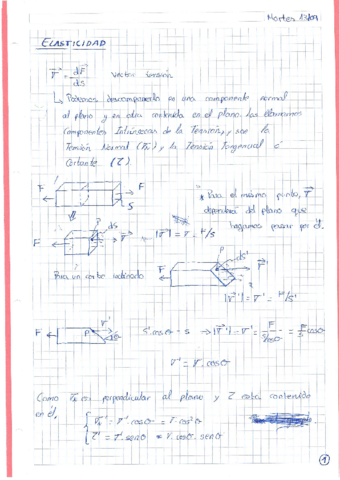 Martes 13/09
ELASTICIDAD
∇⃗ = dF⃗/ds vector tensión
↳ Podemos descomponerlo en una componente normal
al plano y en otra contenida en el plano. Las llamamos
Componentes Intrínsecas de la Tensión, y son la
Tensión Normal (∇n) y la Tensión Tangencial o
Cortante. (τ)
F F
S
* Para el mismo punto, ∇⃗
dependerá del plano que
hagamos pasar por él.
F P ds ∇⃗ |∇⃗| = ∇ = F/S
Para un corte inclinado P ds' ∇⃗'
|∇⃗'| = ∇' = F/S'
F P ∇' ds' S'·cosθ = S → |∇⃗'| = ∇' = F/(S/cosθ) = F/S cosθ
∇' = ∇·cosθ
Como ∇n es perpendicular al plano y τ está contenido
en él,
∇n' = ∇'·cosθ = ∇·cos²θ
τ' = ∇'·senθ = ∇·cosθ·senθ
1